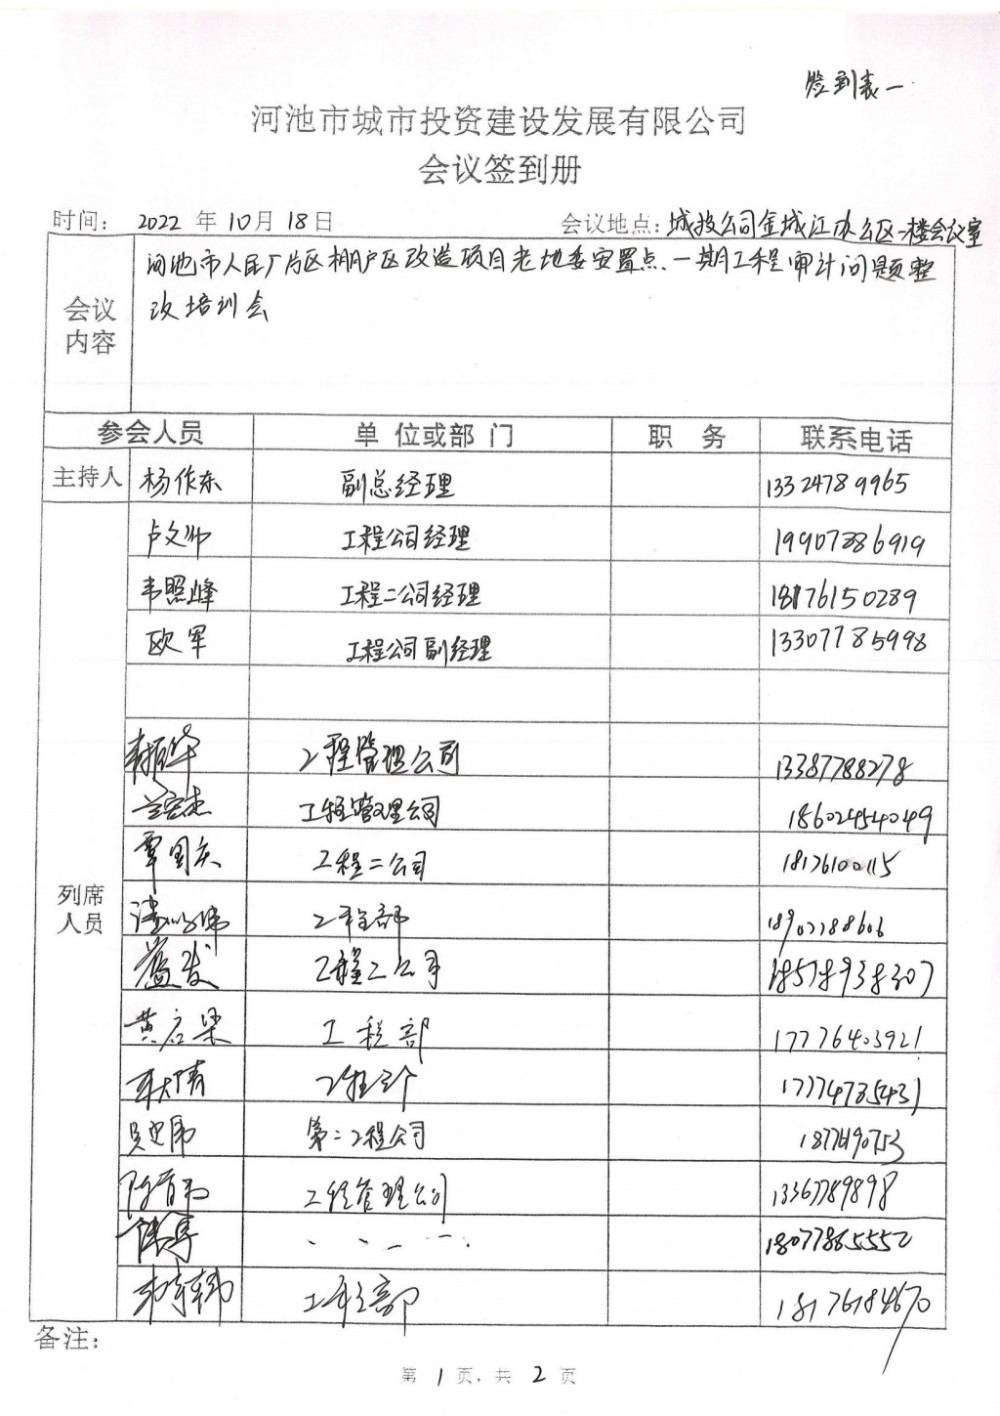 签到表一
河池市城市投资建设发展有限公司
会议签到册
时间: 2022 年 10月 18日 会议地点: 城投公司金城江办公区一楼会议室
会议内容 河池市人民厂片区棚户区改造项目老地委安置点一期工程审计问题整
改培训会
参会人员 单位或部门 职务 联系电话
主持人 杨作东 副总经理 13324789965
卢文帅 工程公司经理 19907786919
韦照峰 工程二公司经理 18176150289
欧军 工程公司副经理 13307785998
列席人员
工程管理公司 13387788278
兰宏杰 工程管理公司 18602454049
覃国庆 工程二公司 18176100115
工程部 18907788606
蓝发 工程二公司 18578938307
黄启梁 工程部 17776403921
17774785431
第二工程公司
工程管理公司 13367789898
18077865552
工程部 18176184670
备注:
第 1 页, 共 2 页